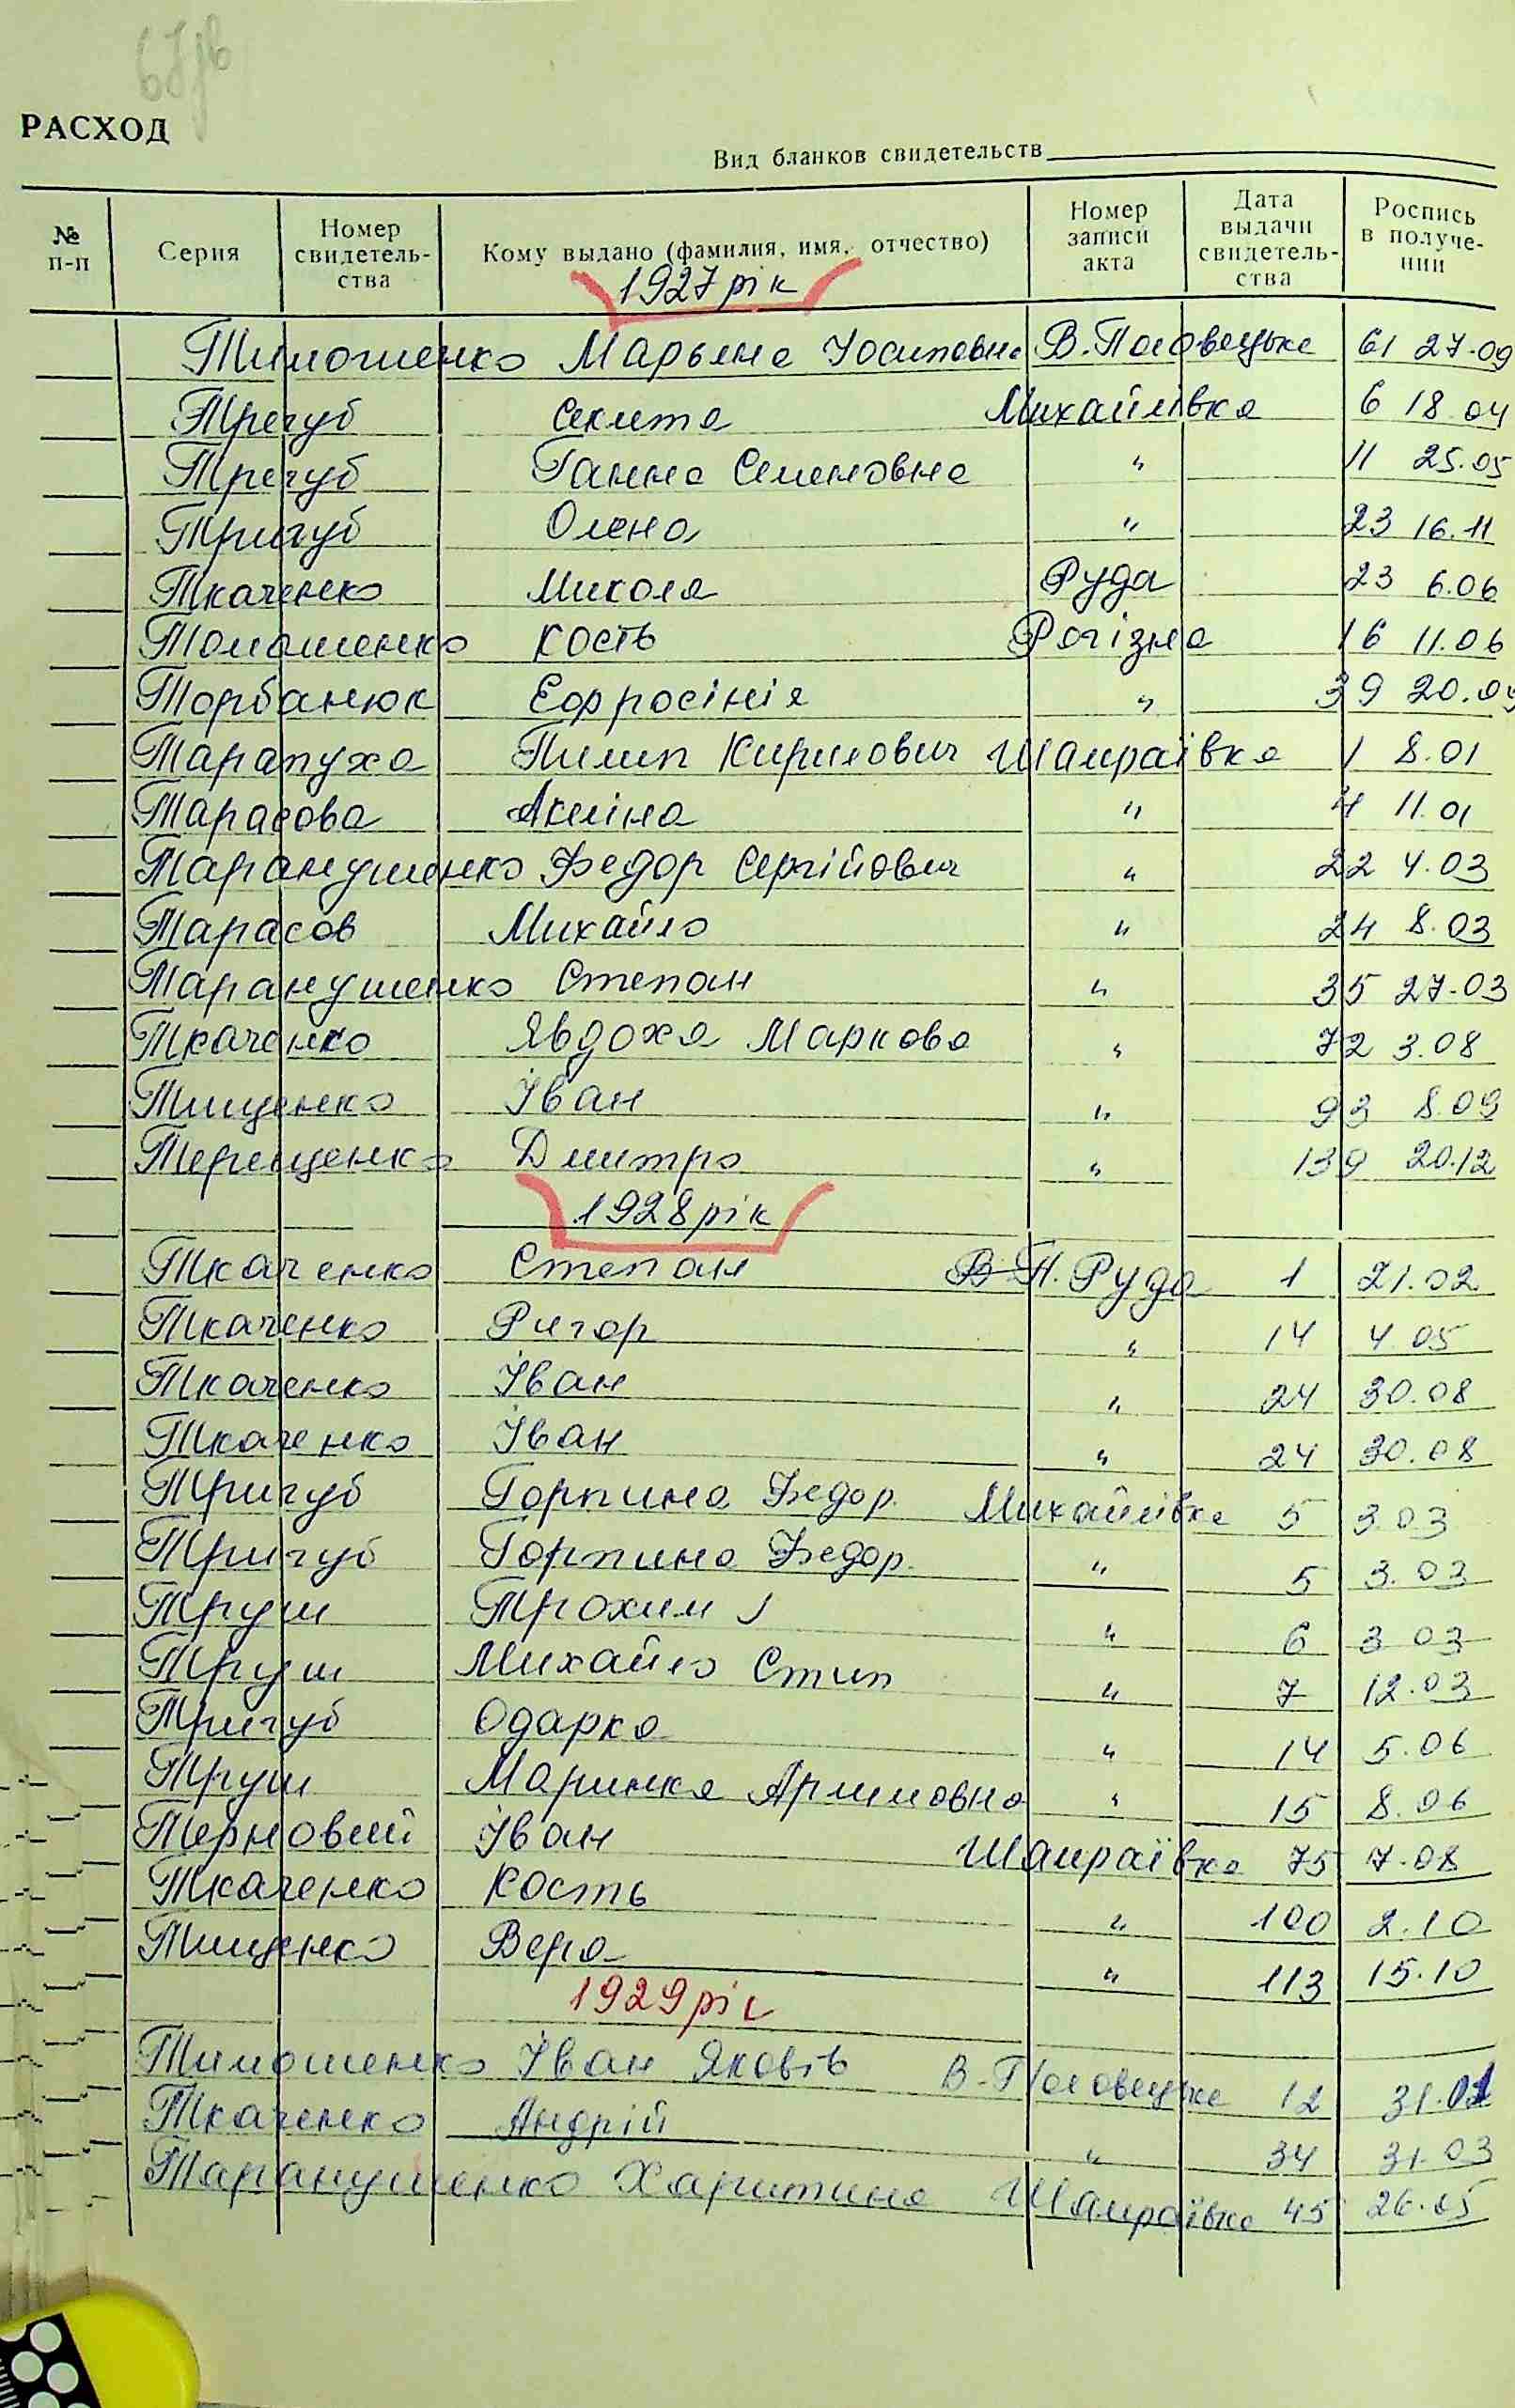 РАСХОД
Вид бланков свидетельств
№ п-п Серия Номер свидетель-ства Кому выдано (фамилия, имя, отчество) Номер записи акта Дата выдачи свидетель-ства Роспись в получе-нии
1927 рік
Тимошенко Марьяна Йосиповна В. Половецьке 61 27.09
Трегуб Секлета Михайлівка 6 18.04
Трегуб Ганна Семеновна " 11 25.05
Тригуб Олена " 23 16.11
Ткаченко Микола Руда 23 6.06
Томашенко Кость Рогізна 16 11.06
Торбанюк Єфросінія " 39 20.09
Тарапуха Пилип Кирилович Шамраївка 1 8.01
Тарасова Акліна " 4 11.01
Таранушенко Федор Сергійович " 22 4.03
Тарасов Михайло " 24 8.03
Таранушенко Степан " 35 27.03
Ткаченко Явдоха Маркова " 72 3.08
Тищенко Іван " 93 8.09
Терещенко Дмитро " 139 20.12
1928 рік
Ткаченко Степан В.П. Руда 1 21.02
Ткаченко Ригор " 14 4.05
Ткаченко Іван " 24 30.08
Ткаченко Іван " 24 30.08
Тригуб Горпина Федор. Михайлівка 5 3.03
Тригуб Горпина Федор. " 5 3.03
Труш Трохим І " 6 3.03
Труш Михайло Стип " 7 12.03
Тригуб Одарка " 14 5.06
Труш Маринка Артимовна " 15 8.06
Терновий Іван Шамраївка 75 7.08
Ткаченко Кость " 100 2.10
Тищенко Вера " 113 15.10
1929 рік
Тимошенко Іван Яковів В-Половецьке 12 31.01
Ткаченко Андрій " 34 31.03
Таранушенко Харитина Шамраївка 45 26.05